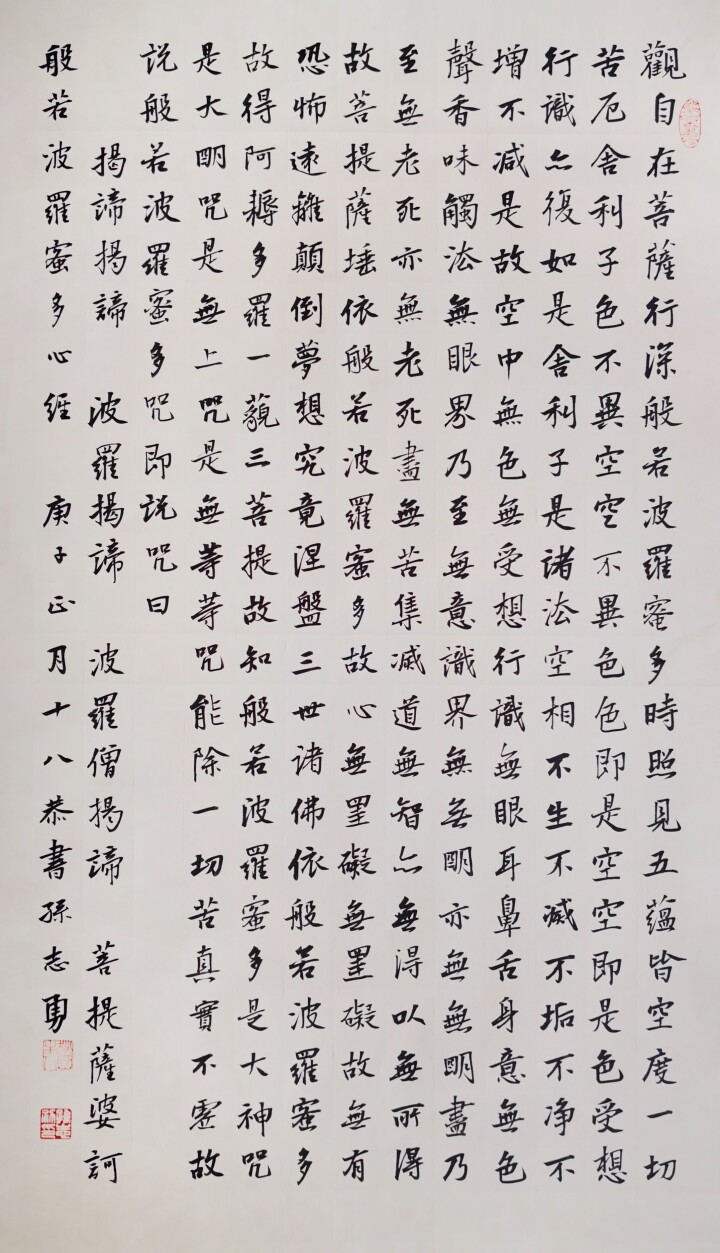 觀自在菩薩行深般若波羅蜜多時照見五蘊皆空度一切
苦厄舍利子色不異空空不異色色即是空空即是色受想
行識亦復如是舍利子是諸法空相不生不滅不垢不净不
增不减是故空中無色無受想行識無眼耳鼻舌身意無色
聲香味觸法無眼界乃至無意識界無無明亦無無明盡乃
至無老死亦無老死盡無苦集滅道無智亦無得以無所得
故菩提薩埵依般若波羅蜜多故心無罣礙無罣礙故無有
恐怖遠離顛倒夢想究竟涅盤三世诸佛依般若波羅蜜多
故得阿耨多羅一藐三菩提故知般若波羅蜜多是大神咒
是大明咒是無上咒是無等等咒能除一切苦真實不虛故
説般若波羅蜜多咒即説咒曰
揭諦揭諦 波羅揭諦 波羅僧揭諦 菩提薩婆訶
般若波羅蜜多心經 庚子正月十八恭書孫志勇